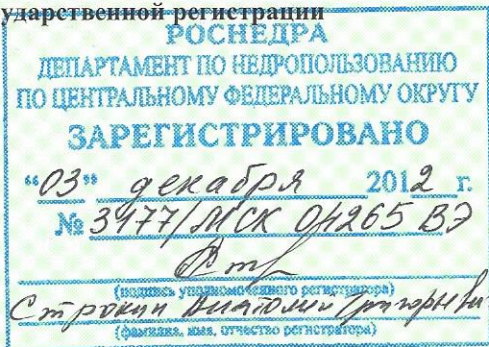 ударственной регистрации
РОСНЕДРА
ДЕПАРТАМЕНТ ПО НЕДРОПОЛЬЗОВАНИЮ
ПО ЦЕНТРАЛЬНОМУ ФЕДЕРАЛЬНОМУ ОКРУГУ
ЗАРЕГИСТРИРОВАНО
“03” декабря 2012 г.
№ 3177/МСК 04265 ВЭ
(подпись уполномоченного регистратора)
Строкин Анатолий Григорьевич
(фамилия, имя, отчество регистратора)